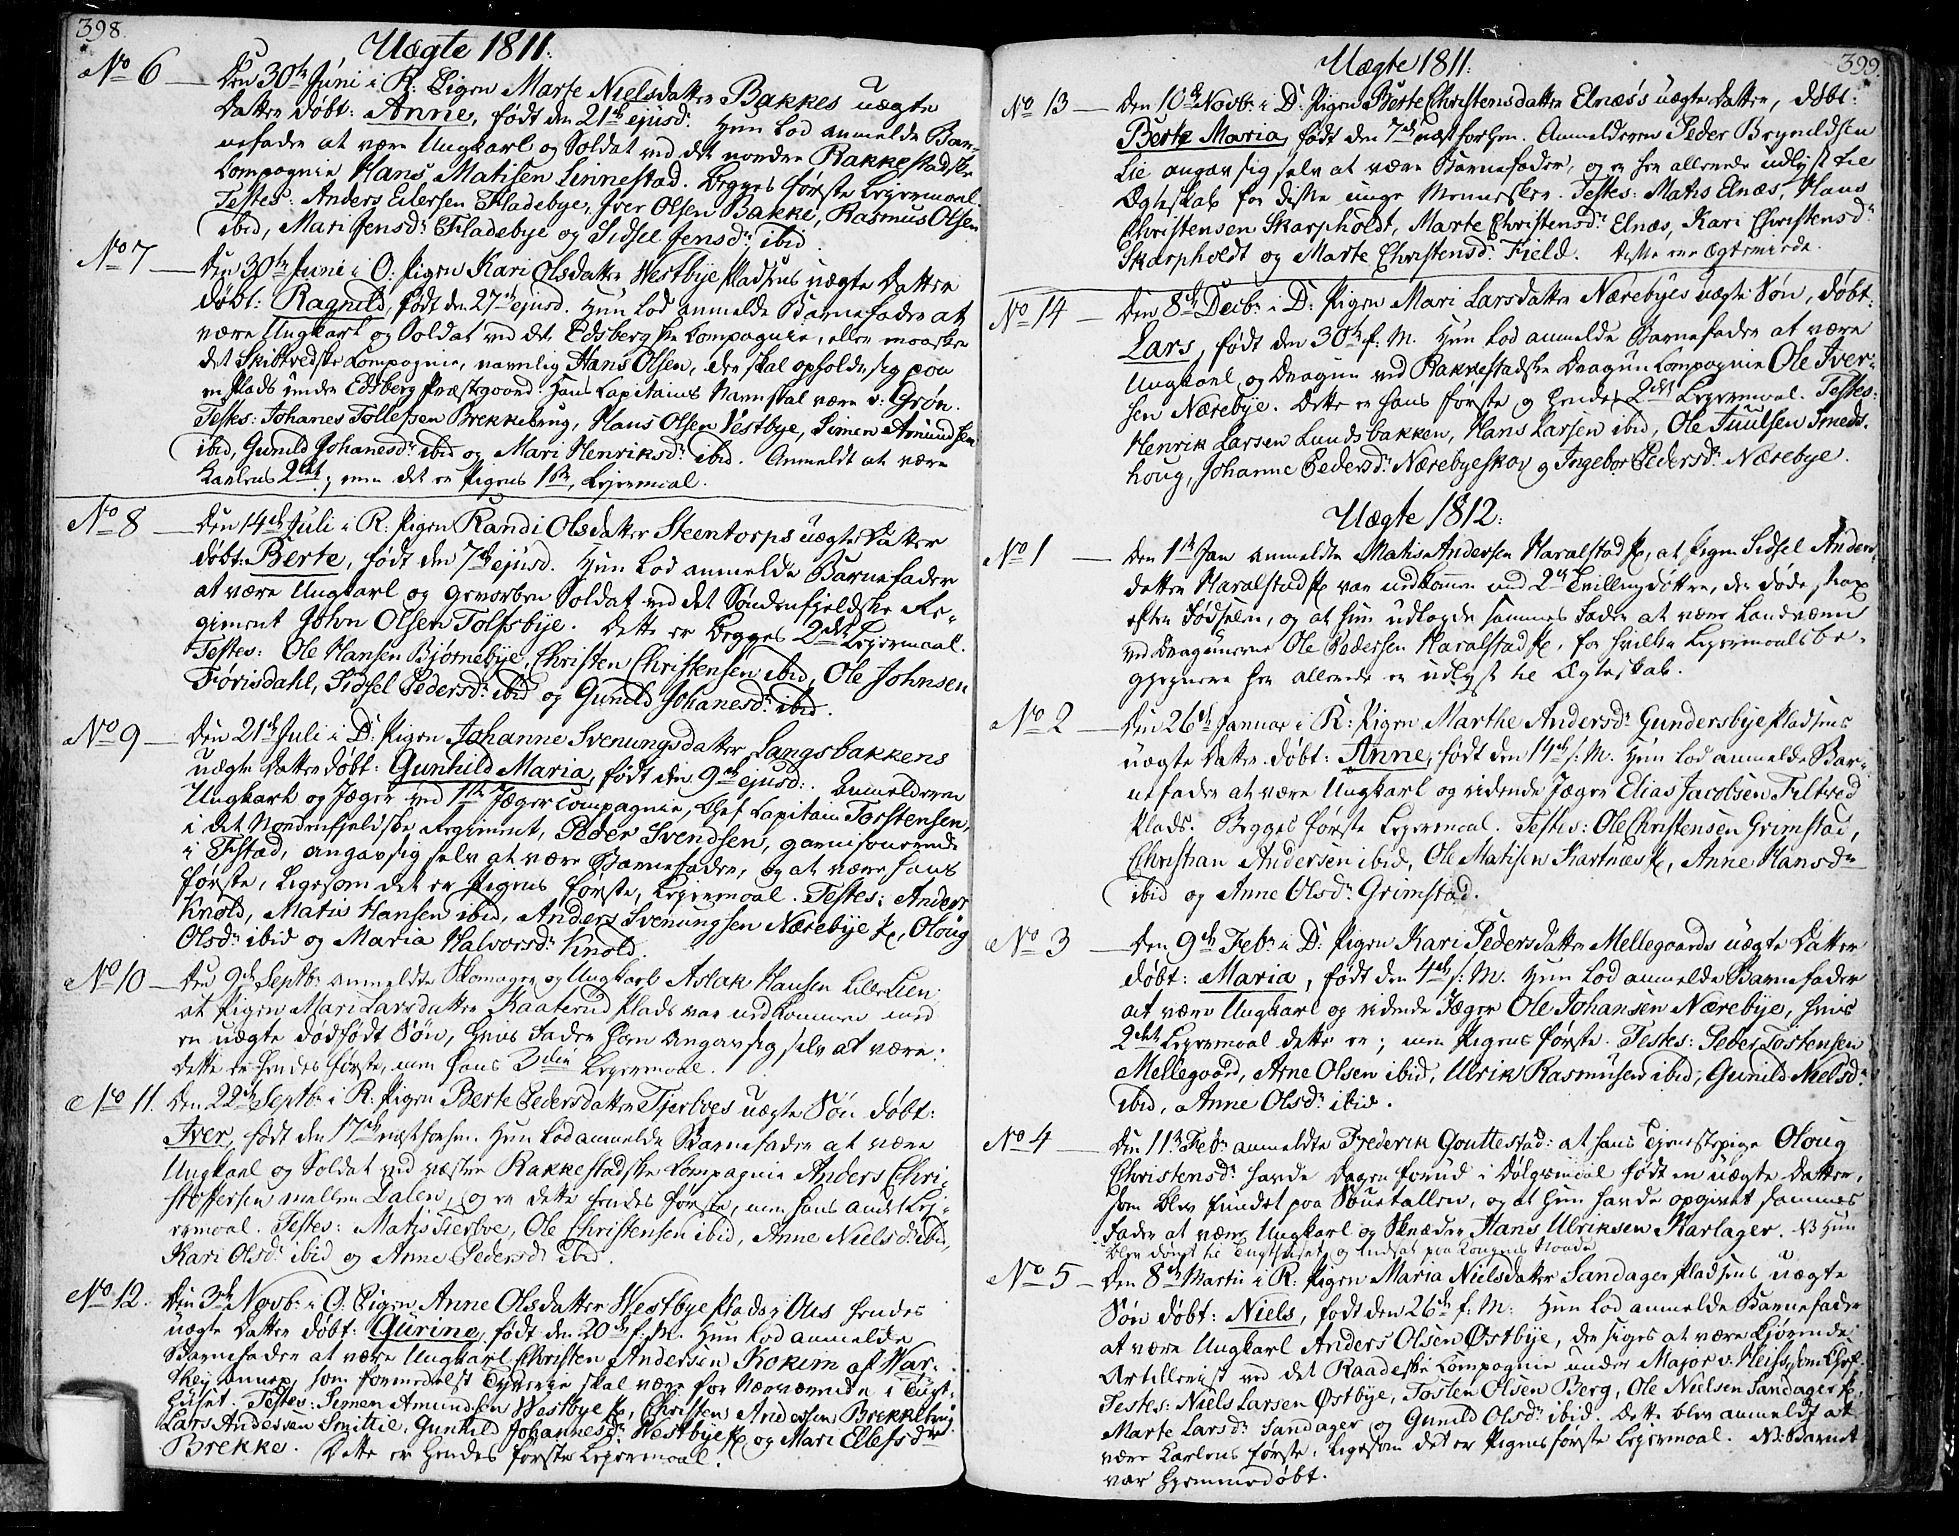 398.
Uægte 1811.
No 6 — Den 30te Juni i R: Pigen Marte Nielsdatter Bakkes uægte
Datter døbt: Anne, født den 21de ejusd. Hun lod anmelde Bar-
nefader at være Ungkarl og Soldat ved det nordre Rakkestadske
Compagnie Hans Matisen Linnestad. Begges første Lejermaal.
Testes: Anders Eilersen Fladebye, Iver Olsen Bakke, Rasmus Olsen
ibid, Mari Jensdr Fladebye og Sidsel Jensdr ibid.
No 7 — Den 30te Juni i O: Pigen Kari Olsdatter Westbyepladsens uægte Datter
døbt: Ragnild, født den 27de ejusd. Hun lod anmelde Barnefader at
være Ungkarl og Soldat ved det Edsbergske Compagnie, eller maaskee
det Skiptvedske Compagnie, navnlig Hans Olsen, der skal opholde sig paa
en Plads under Edsberg Præstegaard. Hans Capitains Navn skal være v: Grøn.
Testes: Johanes Tollefsen Brekkebrug, Hans Olsen Vestbye, Simen Amundsen
ibid, Gunild Johanesdr ibid og Mari Henriksdr ibid. Anmeldt at være
Karlens 2det; men det er Pigens 1ste, Lejermaal.
No 8 — Den 14de Juli i R: Pigen Randi Olsdatter Steentorps uægte Datter
døbt: Berte, født den 7de ejusd. Hun lod anmelde Barnefader
at være Ungkarl og gevorben Soldat ved det Søndenfjeldske Re-
giment John Olsen Tolfsbye. Dette er Begges 2det Lejermaal.
Testes: Ole Hansen Bjørnebye, Christen Christensen ibid, Ole Johnsen
Førisdahl, Sidsel Pedersdr ibid og Gunild Johanesdr ibid.
No 9 — Den 21de Juli i D: Pigen Johanne Svenungsdatter Langsbakkens
uægte Datter døbt: Gunhild Maria, født den 9de ejusd:. Anmelderen
Ungkarl og Jæger ved 1ste Jægercompagnie, Chef Capitain Torstensen,
i det Nordenfjeldske Regiment, Peder Svendsen, garnisonerende
i Fstad, angav sig selv at være Barnefader, og at være hans
første, ligesom det er Pigens første, Lejermaal. Testes: Anders
Knold, Matis Hansen ibid, Anders Svenungsen Nærebye Pl, Oloug
Olsdr ibid og Maria Halvorsdr Knold.
No 10 — Den 9de Septbr anmeldte Skomager og Ungkarl Aslak Hansen Lille Lien
at Pigen Mari Larsdatter Kaaterud Plads var nedkommen med
en uægte dødfødt Søn, hvis Fader han angav sig selv at være:
Dette er hendes første, men hans 3die Lejermaal.
No 11. Den 22de Septbr i R: Pigen Berte Pedersdatter Tjerboes uægte Søn døbt:
Iver, født den 17de næstforhen. Hun lod anmelde Barnefader at være
Ungkarl og Soldat ved vestre Rakkestadske Compagnie Anders Chri-
stoffersen mellem Dalen, og er dette hendes første, men hans andet Lej-
ermaal. Testes: Matis Tierbve, Ole Christensen ibid, Anne Nielsdr ibid,
Kari Olsdr ibid og Anne Pedersdr ibid.
No 12. Den 3die Novbr i O: Pigen Anne Olsdatter Westbyepladsens hendes
uægte Datter døbt: Gurine, født den 20de f: M. Hun lod anmelde
Barnefader at være Ungkarl Christen Andersen Kokim af War-
som formedelst Tyverie skal være for Nærværende i Tugt-
huset. Testes: Simen Amundsen Westbye Pl, Christen Andersen Brekkebrug
Lars Andersen Smittie, Gunhild Johannesdr Westbye Pl og Mari Ellefsdr
Brekke. Dette er hendes første Lejermaal.
399.
Uægte 1811.
No 13 — Den 10de Novbr i D: Pigen Berte Christensdatter Elnæs's uægte Datter, døbt:
Berte Maria, født den 7de næstforhen. Anmelderen Peder Brynildsen
Lie angav sig selv at være Barnefader, og er her allerede udlyst til
Ægteskab for disse unge Mennesker. Testes: Matis Elnæs, Hans
Christensen Skarpholdt, Marte Christensdr Elnæs, Kari Christensdr
Skarpholdt og Marte Christensdr Field. Disse ere Ægteviede.
No 14 — Den 8de Decbr i D: Pigen Mari Larsdatter Nærebyes uægte Søn, døbt:
Lars, født den 30te f: M. Hun lod anmelde Barnefader at være
Ungkarl og Dragun ved Rakkestadske Dragun Compagnie Ole Iver-
sen Nærebye. Dette er hans første og hendes 2det Lejermaal. Testes:
Henrik Larsen Lundsbakken, Hans Larsen ibid, Ole Juulsen Smeds-
houg, Johanne Pedersdr Nærebyeskov og Ingebor Pedersdr Nærebye.
Uægte 1812.
No 1 — Den 1ste Jan anmeldte Matis Andersen Haralstad Pl, at Pigen Sidsel Anders-
datter Haralstad Pl var nedkommen med 2de Tvillingdøttre, der døde strax
efter Fødselen, og at hun udlagde sammes Fader at være Landværn
ved Dragunerne Ole Pedersen Haralstad Pl, for hvilke Lejermaalsbe-
gjengere her allerede er udlyst til Ægteskab.
No 2 — Den 26de Januar i R: Pigen Marthe Andersdr Gundersbyepladsens
uægte Datter døbt: Anne, født den 14de s: M. Hun lod anmelde Bar-
nefader at være Ungkarl og ridende Jæger Elias Jacobsen Filtved
Plads. Begges første Lejermaal. Testes: Ole Christensen Grimstad,
Christian Andersen ibid, Ole Matisen Kartnæs Pl, Anne Hansdr
ibid og Anne Olsdr Grimstad.
No 3 — Den 9de Febr i D: Pigen Kari Pedersdatter Mellegaards uægte Datter
døbt: Maria, født den 4de s: M. Hun lod anmelde Barnefader
at være Ungkarl og ridende Jæger Ole Johansen Nærebye, hvis
2det Lejermaal dette er; men Pigens første. Testes: Peder Tostensen
Mellegaard, Arne Olsen ibid, Ulrik Rasmusen ibid, Gunild Nielsdr
ibid, Anne Olsdr ibid.
No 4 — Den 11te Febr anmeldte Frederik Gouttestad: at hans Tjenestepige Oloug
Christensdr havde Dagen forud i Dølgsmaal født en uægte Datter,
som blev fundet paa Souestallen, og at hun havde opgivet sammes
Fader at være Ungkarl og Skræder Hans Ulriksen Karlager. NB Hun
blev dømt til Tugthuset, og Indsat paa Kongens Naade
No 5 — Den 8de Martii i R: Pigen Maria Nielsdatter Sandagerpladsens uægte
Søn døbt: Niels, født den 26de f: M: Hun lod anmelde Barnefader
at være Ungkarl Anders Olsen Østbye, der siges at være kjørende
Artillerist ved det Raadeske Compagnie under Major v: Heiss, som Chef.
Testes: Niels Larsen Østbye, Tosten Olsen Berg, Ole Nielsen Sandager Pl,
Marte Larsdr Sandager og Gunild Olsdr ibid. Dette blev anmeldt at
være Karlens første, ligesom det er Pigens første Lejermaal. NB: Barnet
var hjemmedøbt.